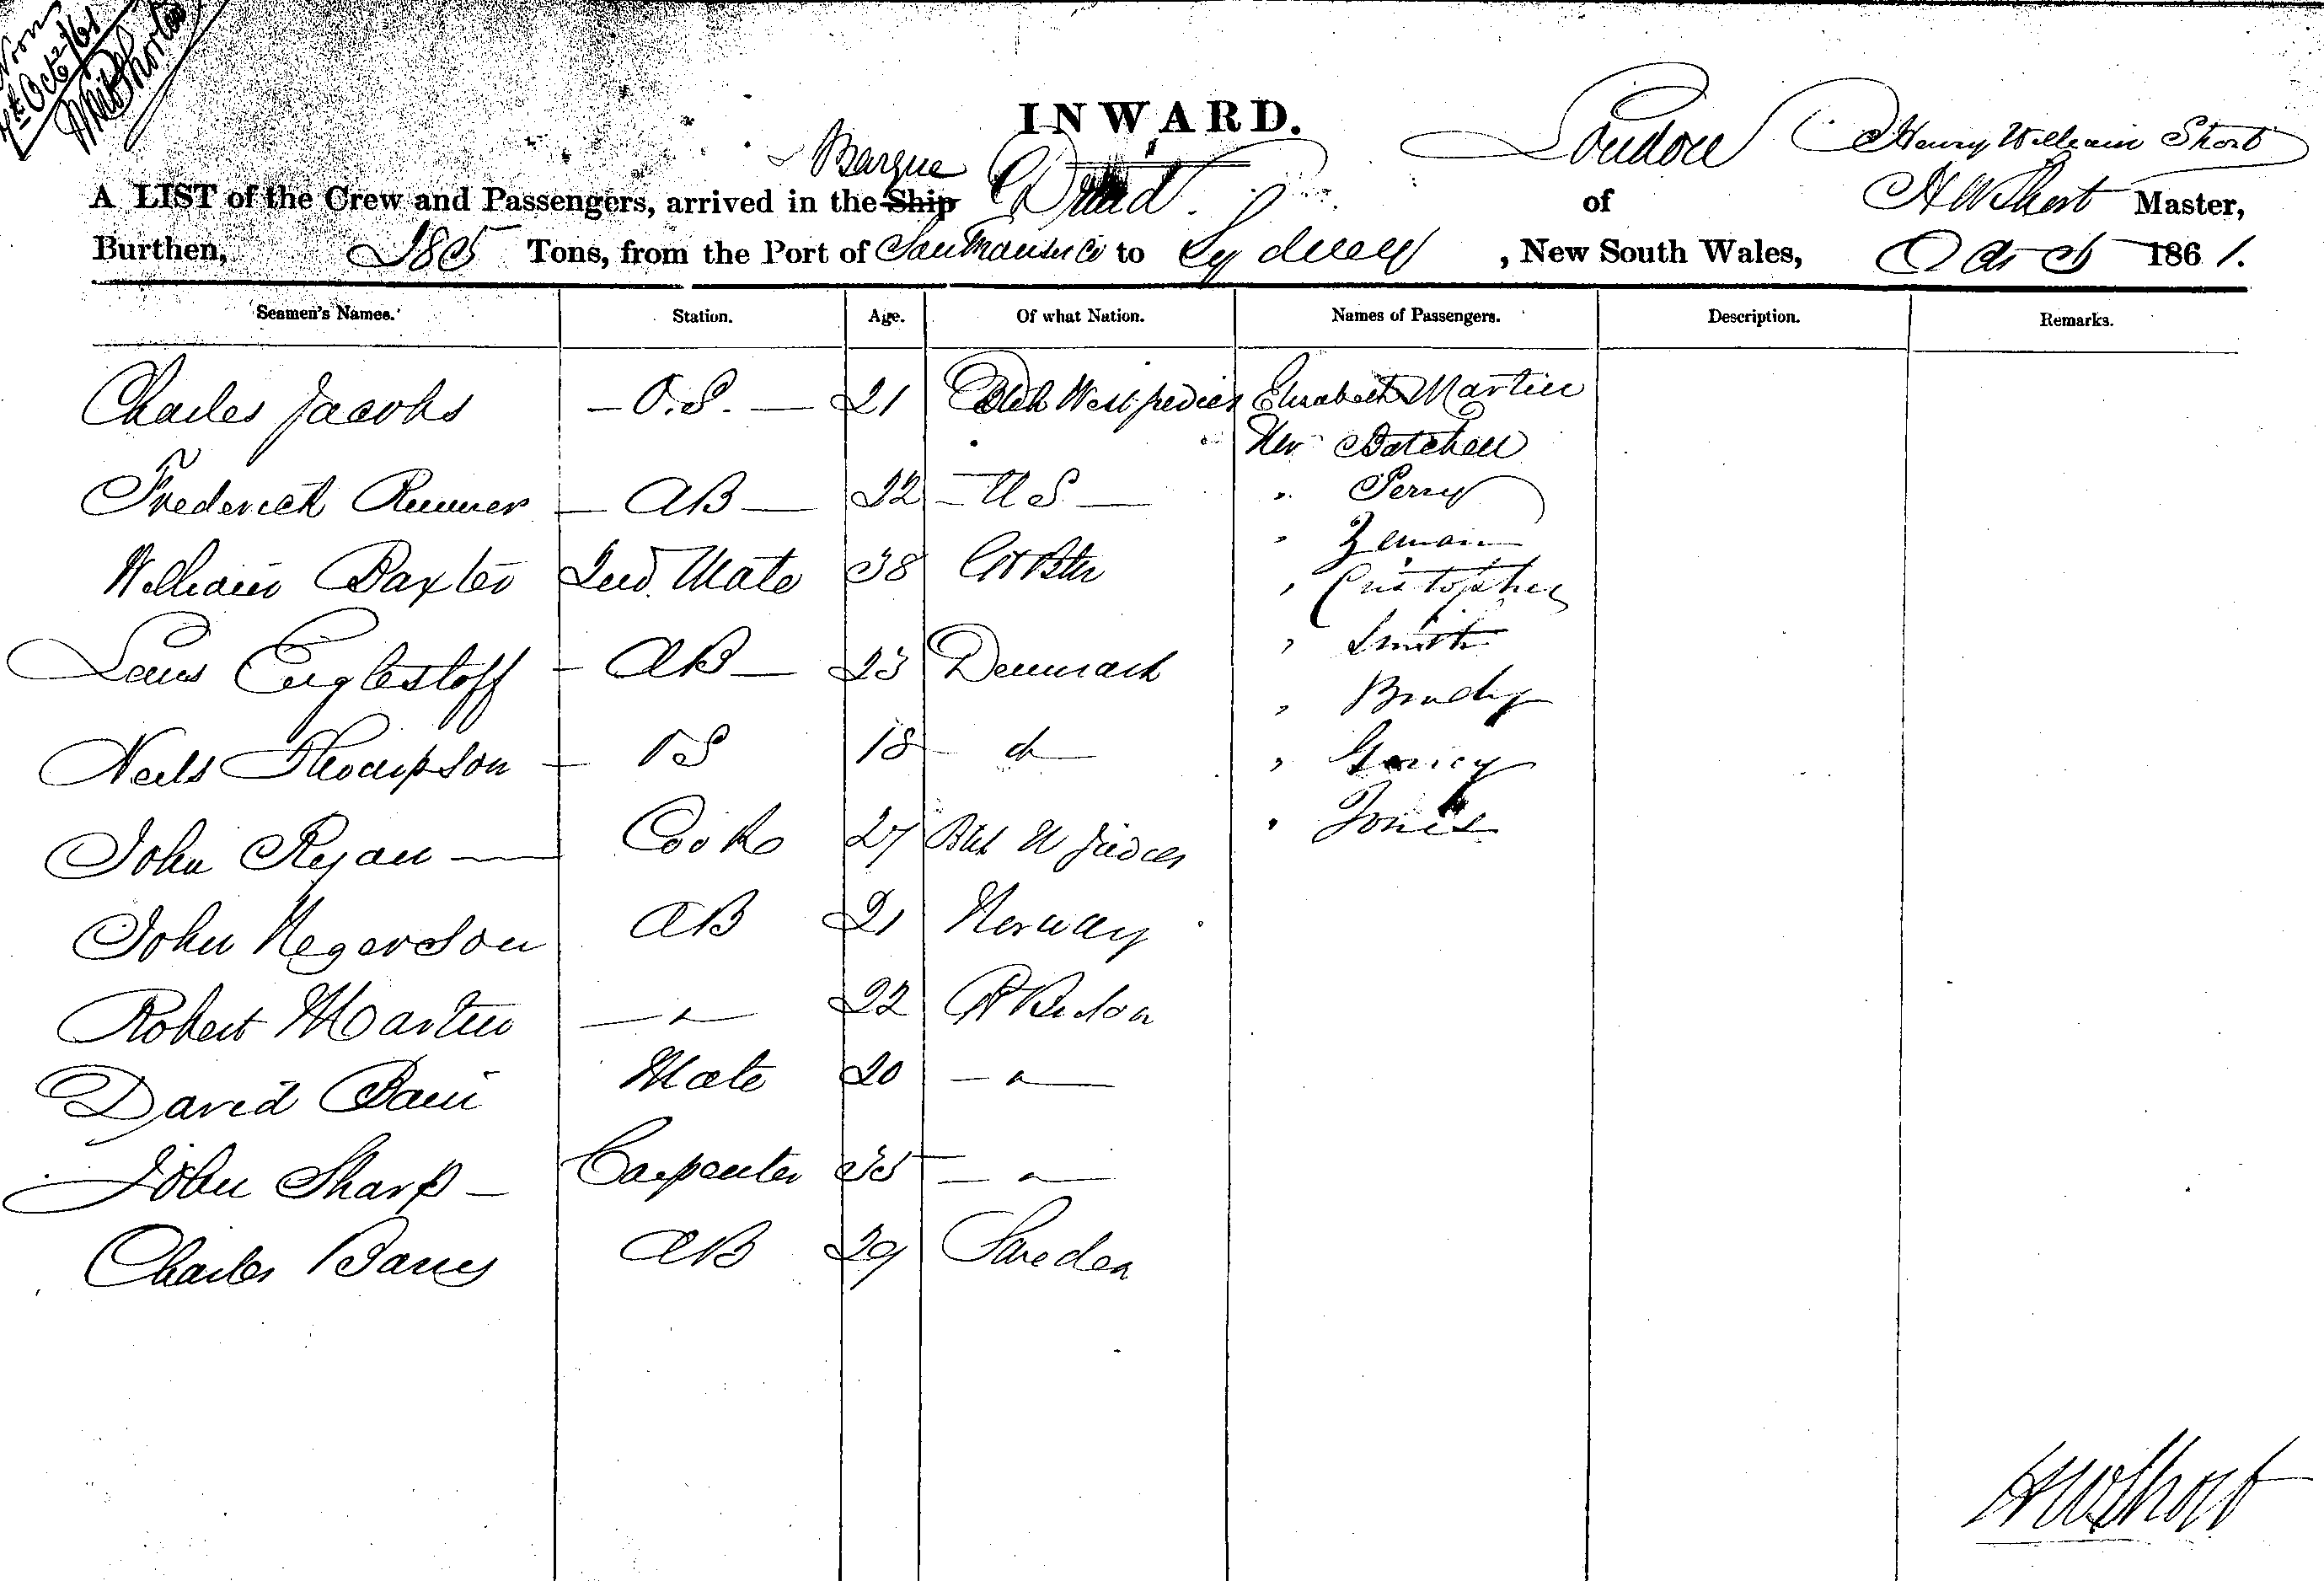 Noon
4th Octr/61
INWARD.
Barque Druid London Henry William Short
A LIST of the Crew and Passengers, arrived in the Ship of H W Short Master,
Burthen, 285 Tons, from the Port of San Francisco to Sydney, New South Wales, Oct 1861.
Seamen's Names. Station. Age. Of what Nation. Names of Passengers. Description. Remarks.
Charles Jacobs — O.S. — 21 West Indies Elizabeth Martin
Mr Batchell
Frederick — AB — 22 — U S — " Perry
"
William Baxter 2nd Mate 38 Gt Btn " Cristopher
" Smith
Englestoff — AB — 23 Denmark
" Brady
Neils Thompson — OS 18 — do —
John Ryan — Cook 27 W Indies " Jones
John AB 21 Norway
Robert Martin — " — 22
David Bain Mate 20 — " —
John Sharp — Carpenter 35 — " —
Charles AB 29 Sweden
H W Short